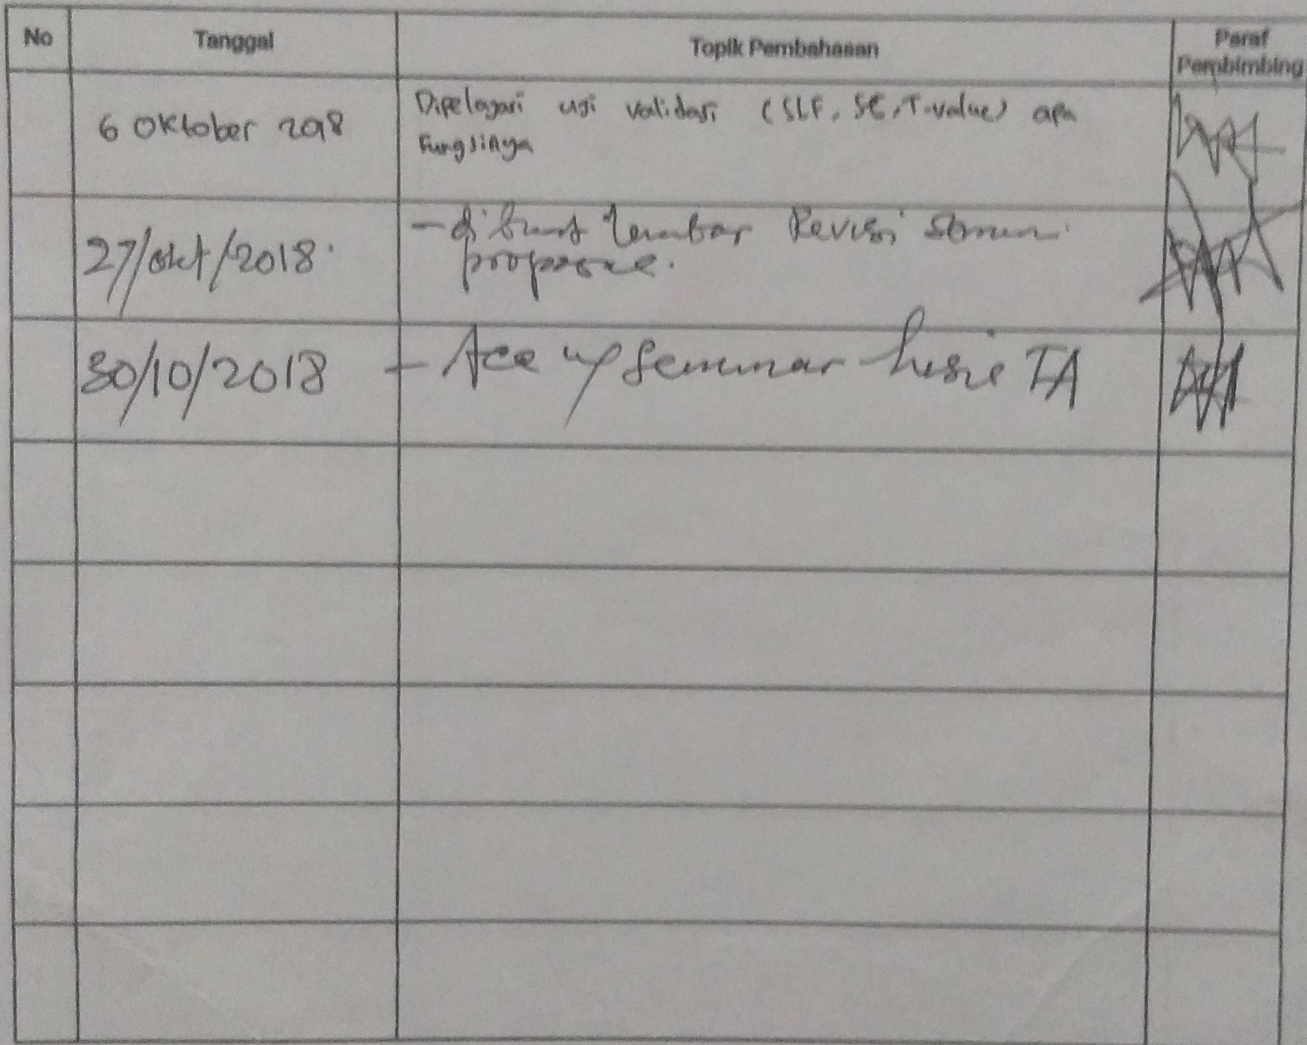 No Tanggal Topik Pembahasan Paraf
Pembimbing
6 Oktober 2018 Dipelajari uji validasi (SLF, SE, T-value) apa
Fungsinya
27/okt/2018 - dibuat lembar Revisi
30/10/2018 - Acc seminar TA